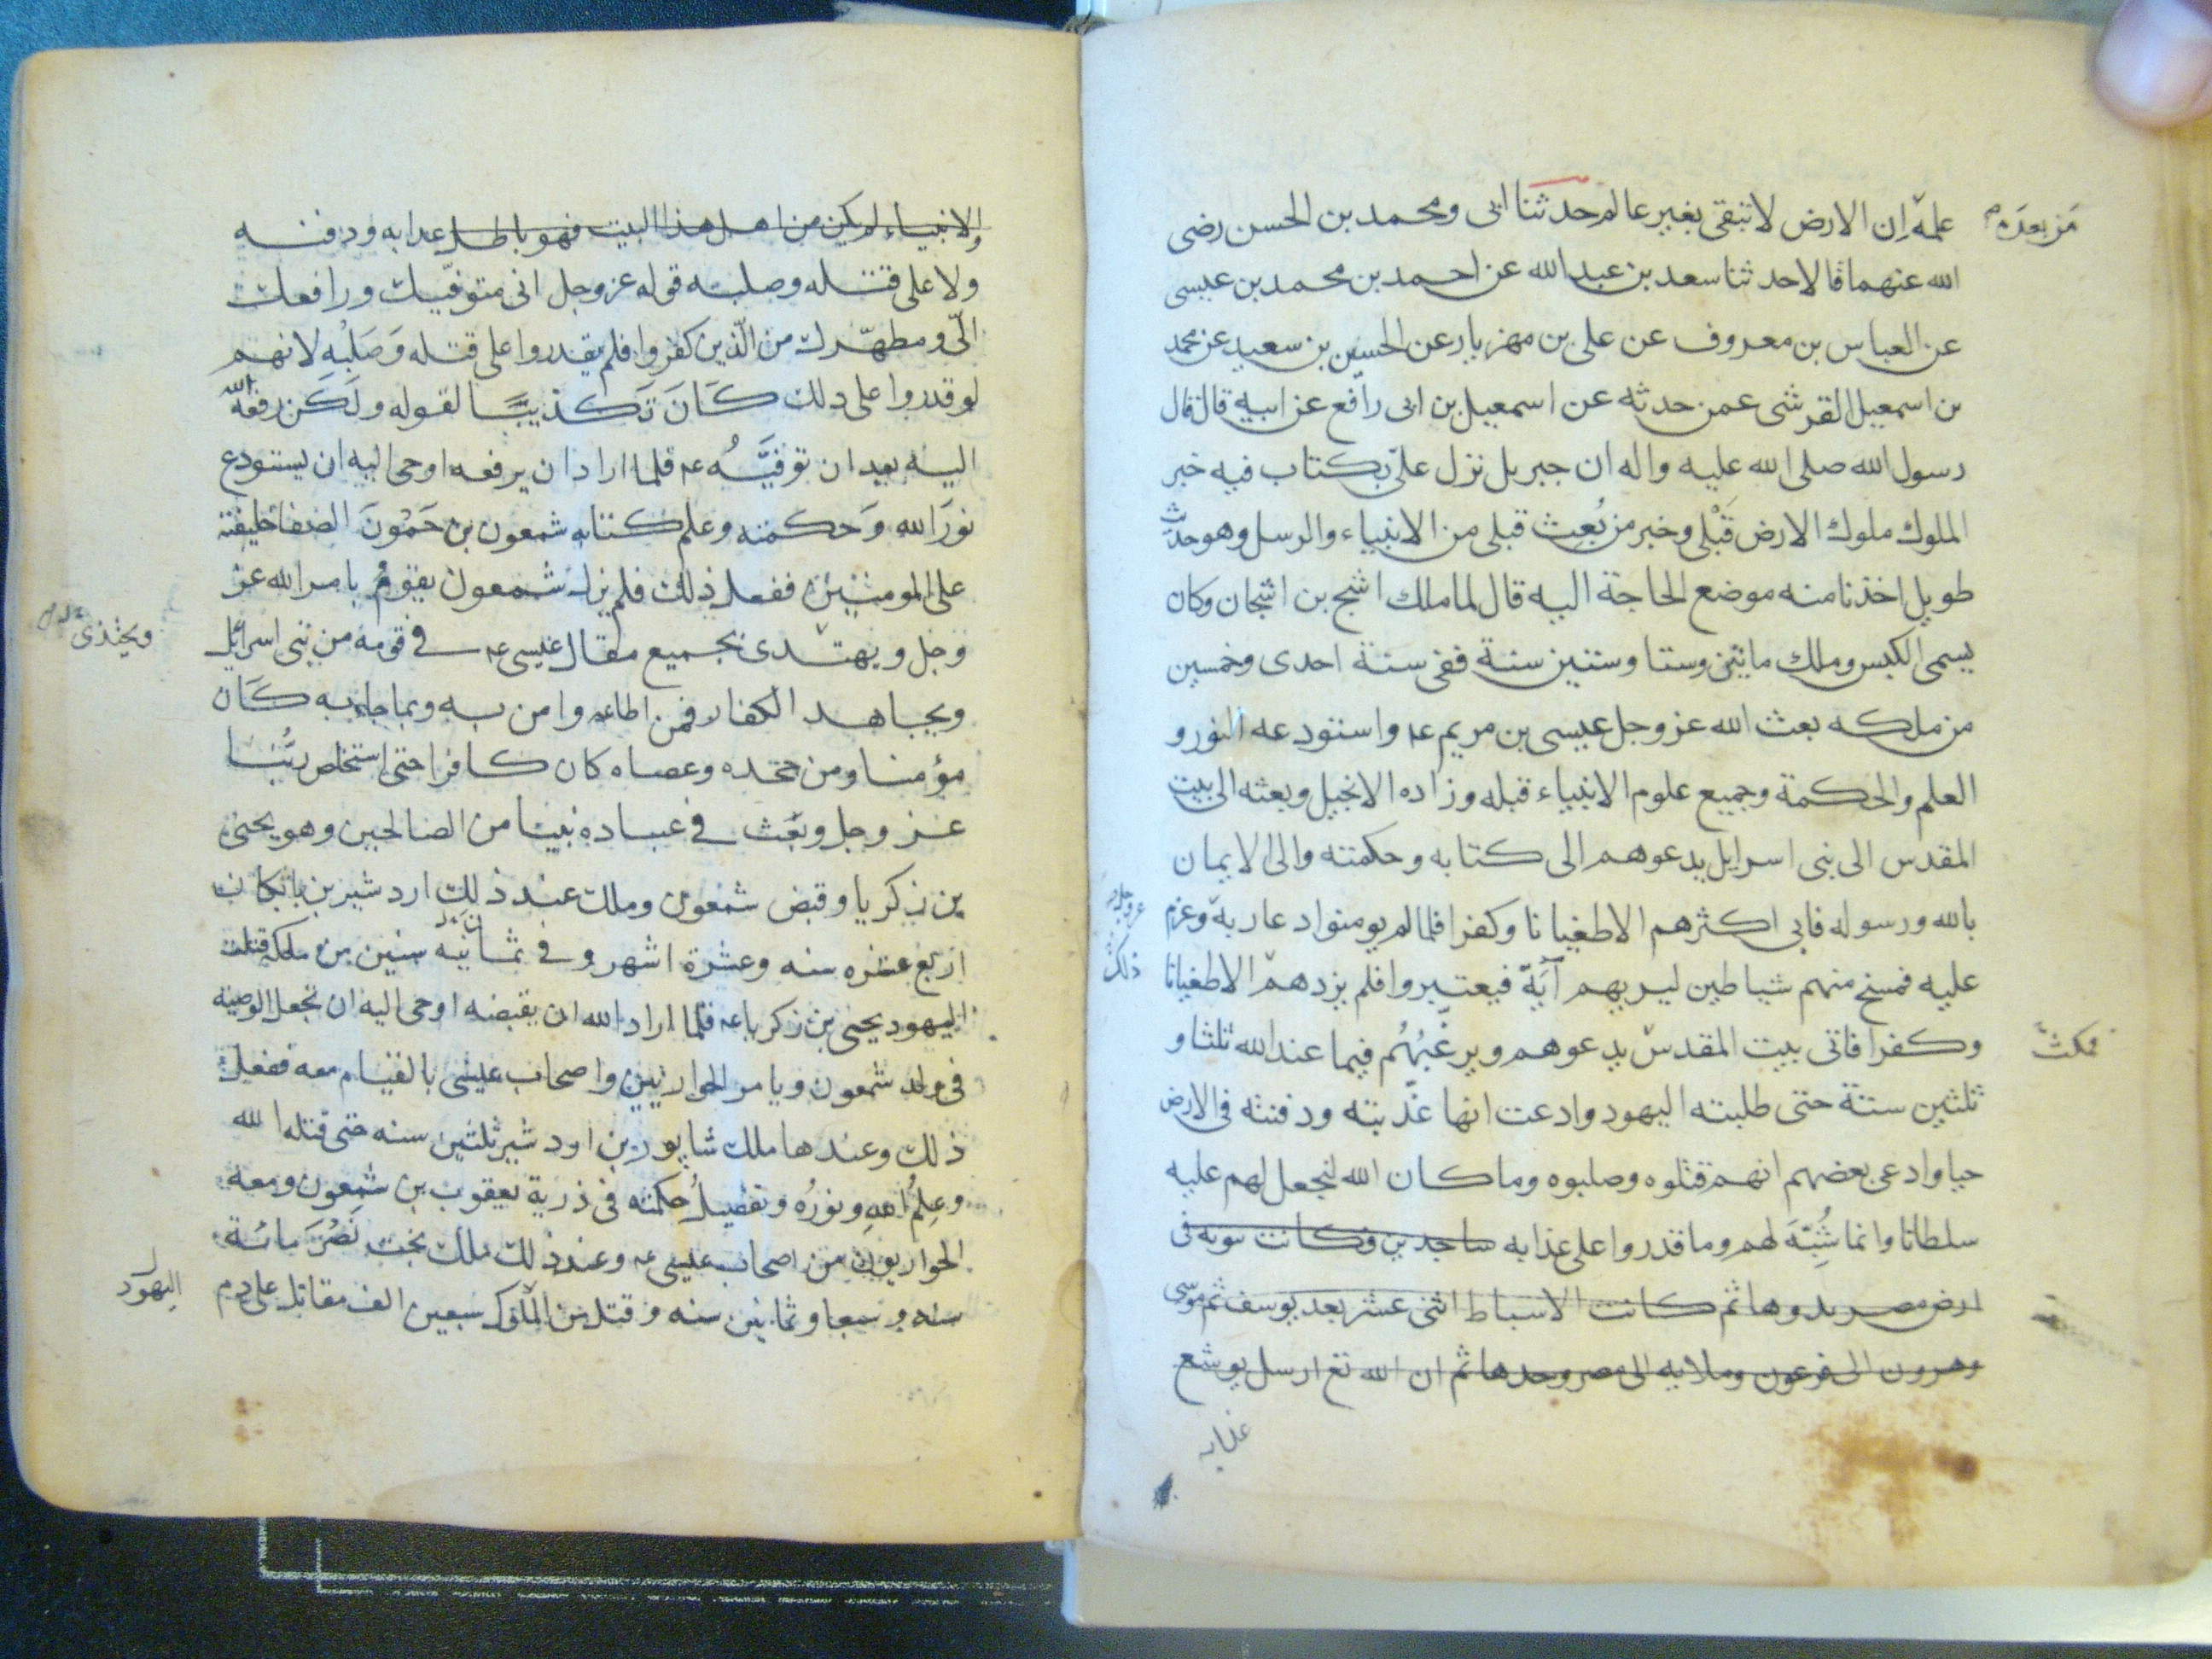 علمه ان الارض لا تبقى بغير عالم حدثنا ابى ومحمد بن الحسن رضى
من بعده
الله عنهما قالا حدثنا سعد بن عبد الله عن احمد بن محمد بن عيسى
عن العباس بن معروف عن على بن مهزيار عن الحسين بن سعيد عن محمد
بن اسمعيل القرشى عمن حدثه عن اسمعيل بن ابى رافع عن ابيه قال قال
رسول الله صلى الله عليه واله ان جبريل نزل علىّ بكتاب فيه خبر
الملوك ملوك الارض قَبْلى وخبر من بُعِث قبلى من الانبياء والرسل وهو حديث
طويل اخذنا منه موضع الحاجة اليه قال لما ملك اشبح بن اشجان وكان
يسمى الكيس وملك مايتين وستا وستين سنة ففى سنة احدى وخمسين
من ملكه بعث الله عز وجل عيسى بن مريم عه واستودعه النور و
العلم والحكمة وجميع علوم الانبياء قبله وزاده الانجيل وبعثه الى بيت
المقدس الى بنى اسرايل يدعوهم الى كتابه وحكمته والى الايمان
بالله ورسوله فابى اكثرهم الا طغيانا وكفرا فلما لم يومنوا دعا ربه وعزم
عليه فمسخ منهم شياطين ليريهم آية فيعتبروا فلم يزدهم الا طغيانا
ذلك
وكفرا فاتى بيت المقدس يدعوهم ويرغّبُهُم فيما عند الله ثلثا و
فمكث
ثلثين سنة حتى طلبته اليهود وادعت انها عذّبته ودفنته فى الارض
حيا وادعى بعضهم انهم قتلوه وصلبوه وما كان الله ليجعل لهم عليه
سلطانا وانما شُبِّهَ لهم وما قدروا على عذابه ساجدين وكانت نبوته فى
ارض مصر بدوها ثم كانت الاسباط اثنى عشر بعد يوسف ثم موسى
وهرون الى فرعون وملايه الى مصر وحدها ثم ان الله تع ارسل يوشع
والانبياء لم يكن من اهل هذا البيت فهو باطل عذابه ودفنه
ولا على قتله وصلبه قوله عز وجل انى متوفّيك ورافعك
الىّ ومطهّرك من الّذين كفروا فلم يقدروا على قتله وَصَلْبِهِ لانهم
لو قدروا على ذلك كَانَ تَكذيبًا لقوله ولَكَن رفعه الله
اليه بعد ان توفيَّهُ عه فلما اراد ان يرفعه اوحى اليه ان يستودع
نورَ الله وَحكمته وعلم كتابه شمعون بن حَمُونَ الصفا خليفته
على المومنين ففعل ذلك فلم يزل شمعون يقوم بامر الله عز
وجل ويهتدى بجميع مقال عيسى عه فى قومه من بنى اسرائيل
ويحتذى
ويجاهد الكفار فمن اطاعه وامن به وبما جاء به كَان
مؤمنا ومن جحده وعصاه كان كافرا حتى استخلص ربُّنا
عز وجل وبعث فى عباده نبيا من الصالحين وهو يحيى
بن زكريا وقبض شمعون وملك عند ذلك اردشير بن بابكان
اربع عشره سنه وعشرة اشهر وفى ثمانيه سنين من ملكه قتلت
اليهود يحيى بن زكريا عه فلما اراد الله ان يقبضه اوحى اليه ان تجعل الوصية
فى ولد شمعون ويامر الحواريين واصحاب عيسى بالقيام معه ففعل
ذلك وعندها ملك شاپور بن اردشير ثلثين سنه حتى قتله الله
وعِلمُ اللهِ ونورُه وتفصيلُ حكمته فى ذرية يعقوب بن شمعون ومعه
الحواريون من اصحاب عيسى عه وعند ذلك ملك بخت نصُرَ مائة
سنه وسبعا وثمانين سنه وقتل من الملوك سبعين الف مقاتل على دم
اليهود